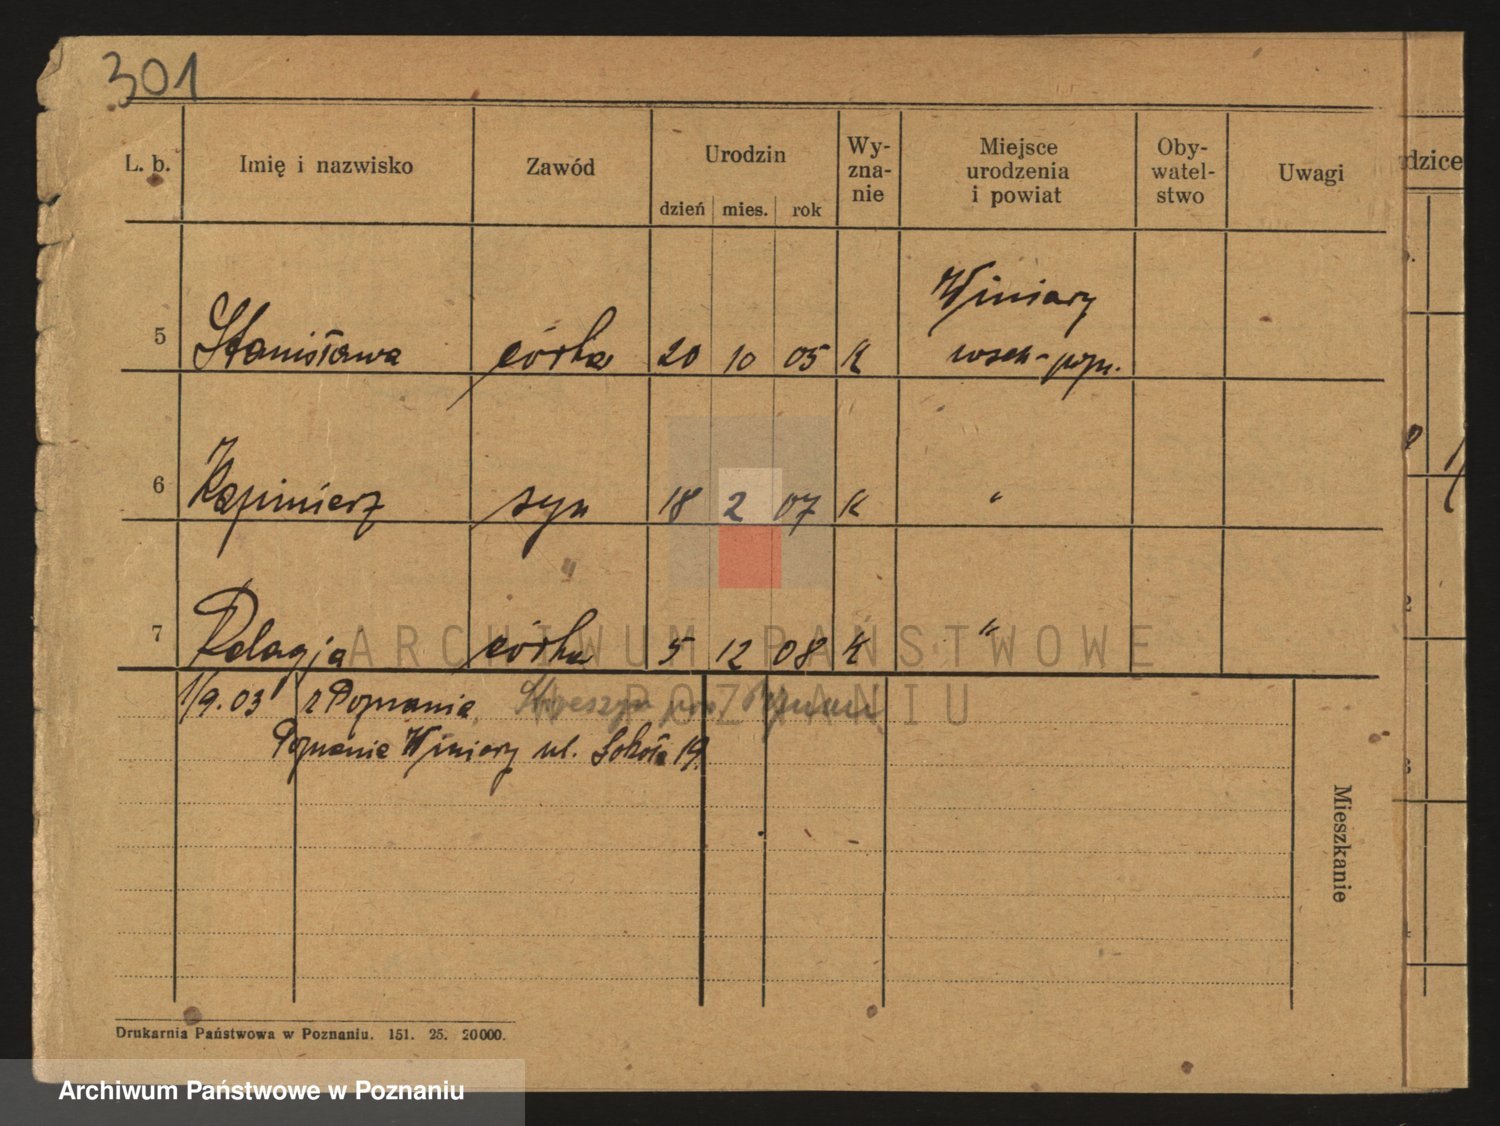 301
L. b. Imię i nazwisko Zawód Urodzin Wy-zna-nie Miejsce urodzenia i powiat Oby-watel-stwo Uwagi
dzień mies. rok
dzice
Winiary
5 Stanisława córka 20 10 05 K wsch-pozn.
6 Kazimierz syn 18 2 07 K "
"
7 Pelagja córka 5 12 08 K "
1/9.03 z Poznania
Poznanie Winiary ul. Sokoła 19.
Mieszkanie
Drukarnia Państwowa w Poznaniu. 151. 25. 20000.
ARCHIWUM PAŃSTWOWE
W POZNANIU
Archiwum Państwowe w Poznaniu